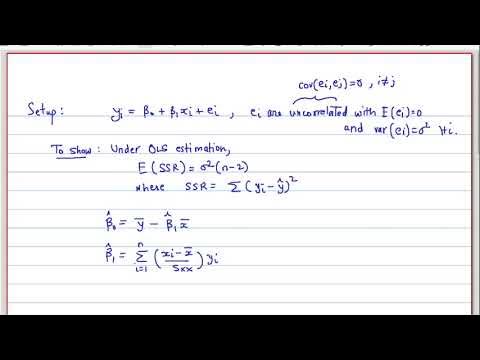 cov(ei,ej)=0, i≠j
Setup: yi = β0 + β1xi + ei, ei are uncorrelated with E(ei)=0
and var(ei)=σ² ∀i.
To show: Under OLS estimation,
E(SSR)=σ²(n-2)
where SSR= Σ(yi-ŷ)²
β̂0 = ȳ - β̂1x̄
β̂1 = Σ_{i=1}^{n} ((xi-x̄)/Sxx) yi